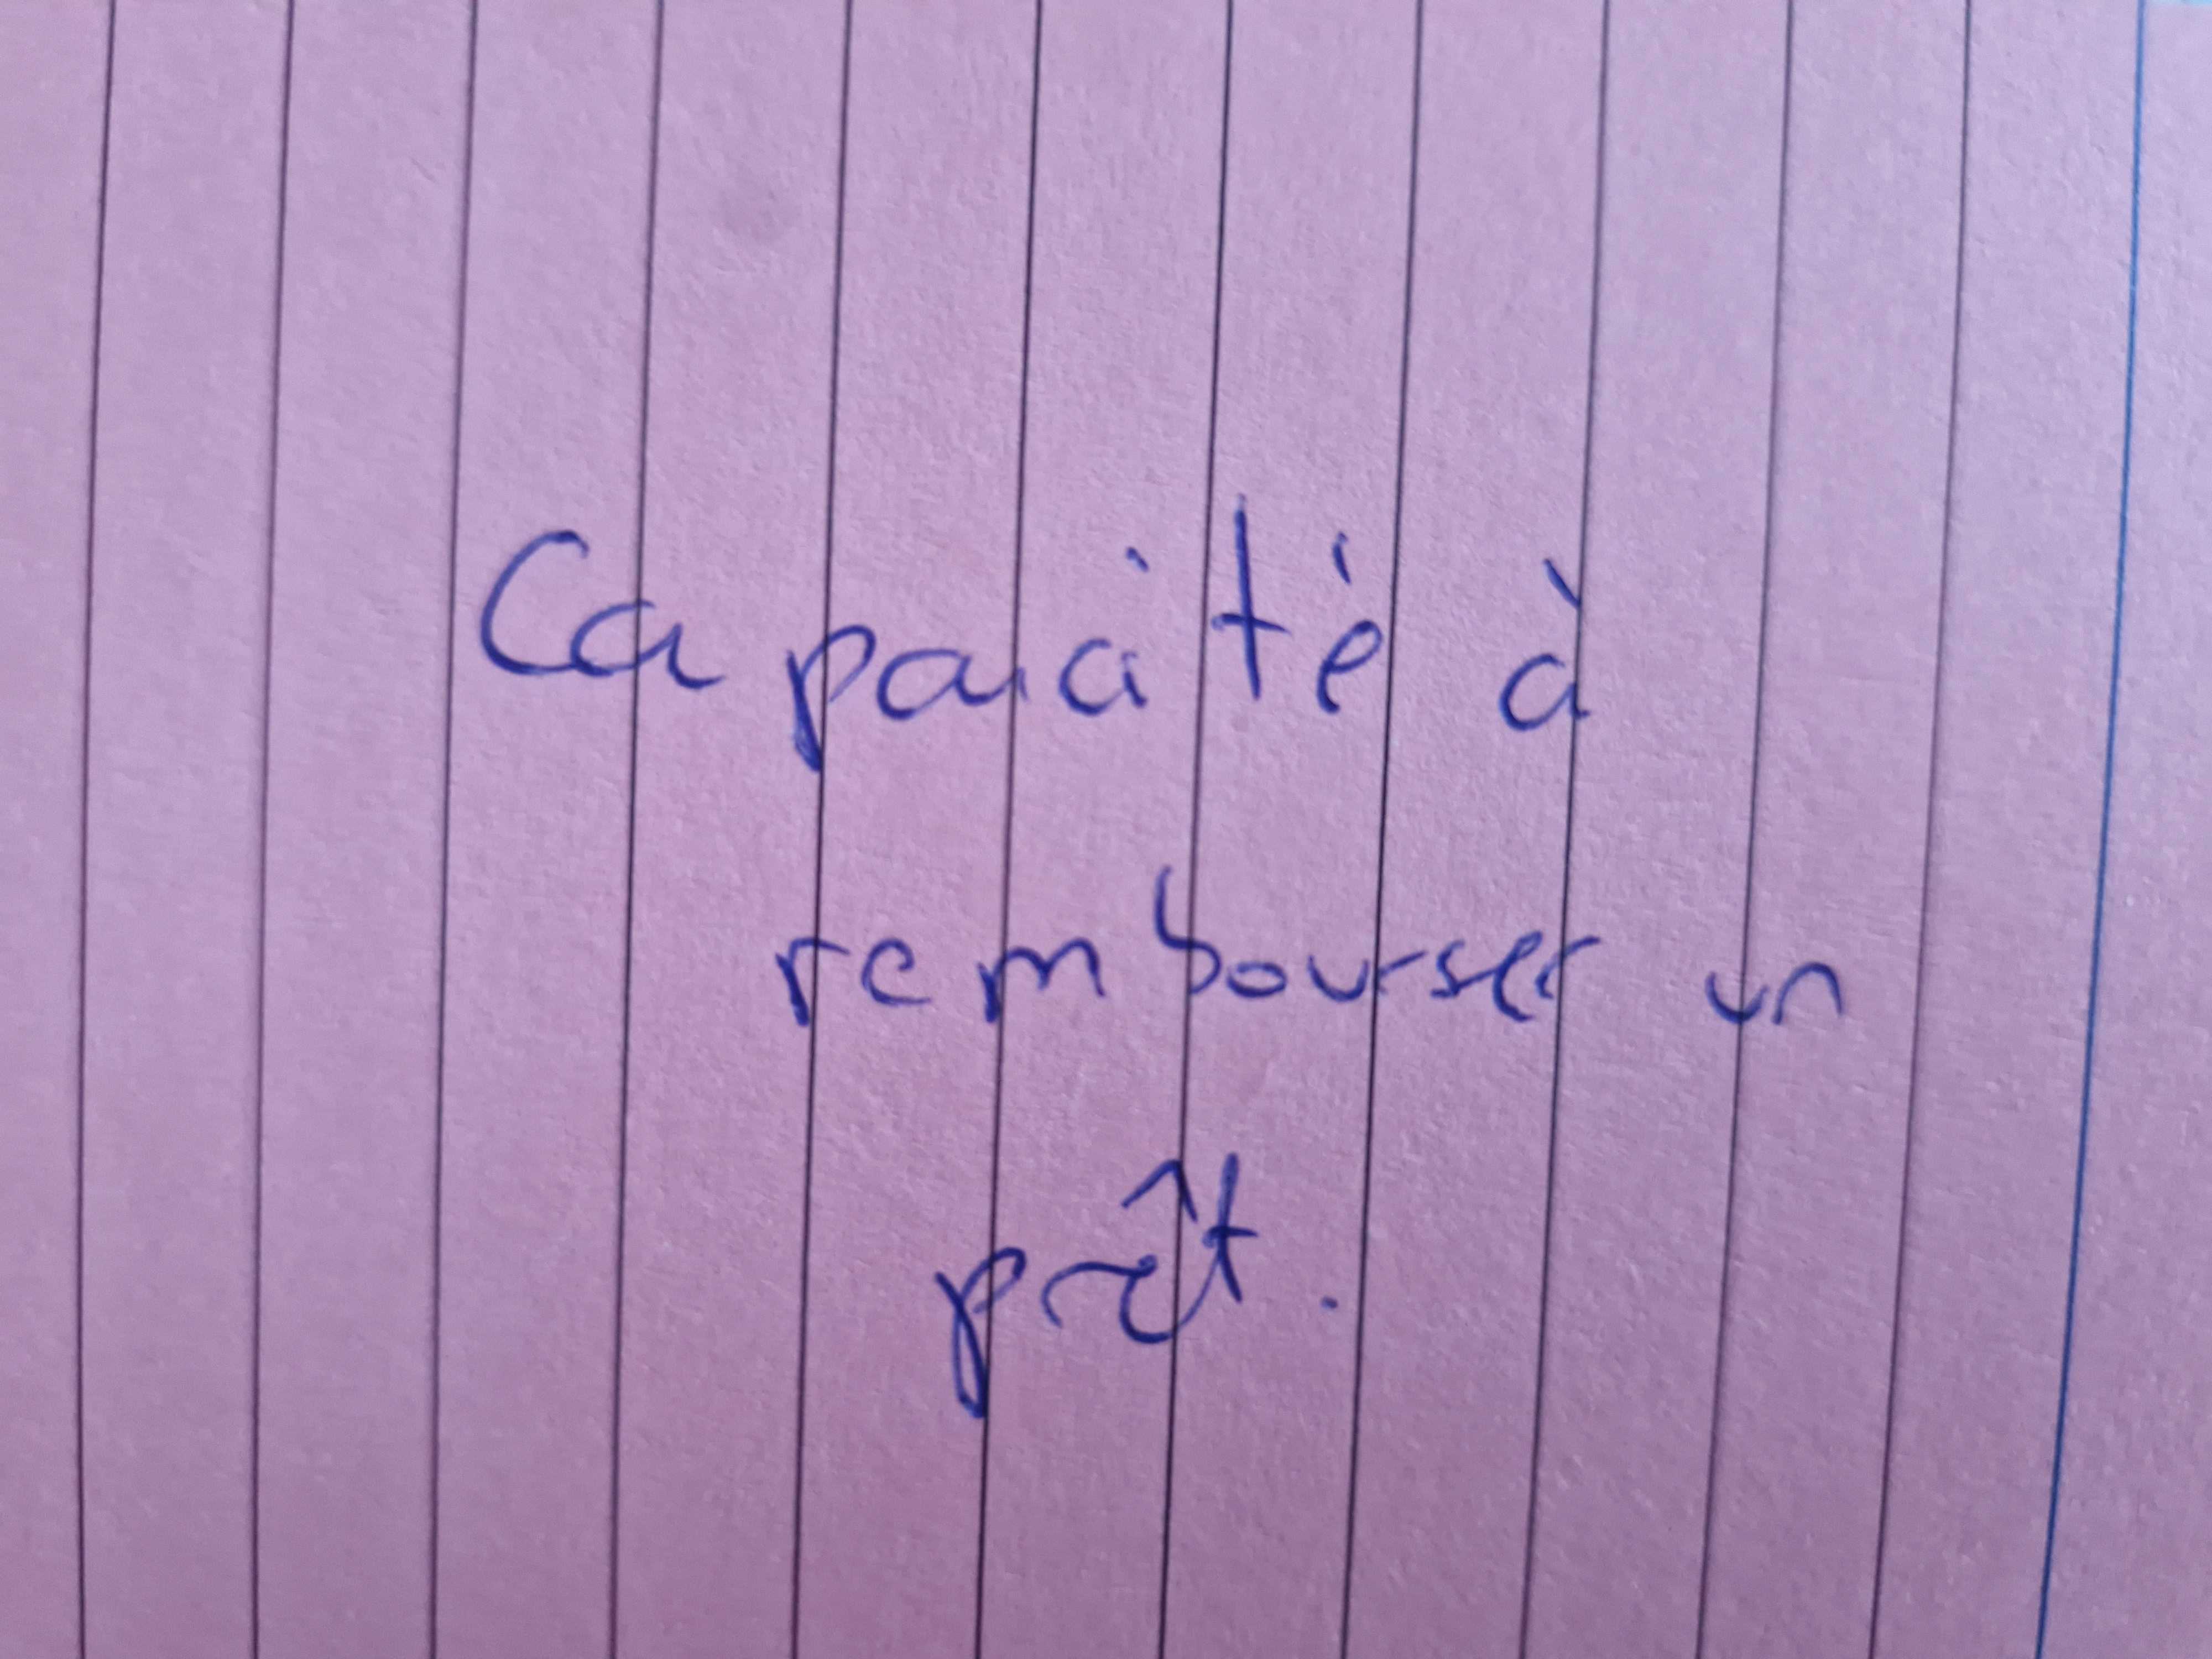 Capacité à
rembourser un
prêt.